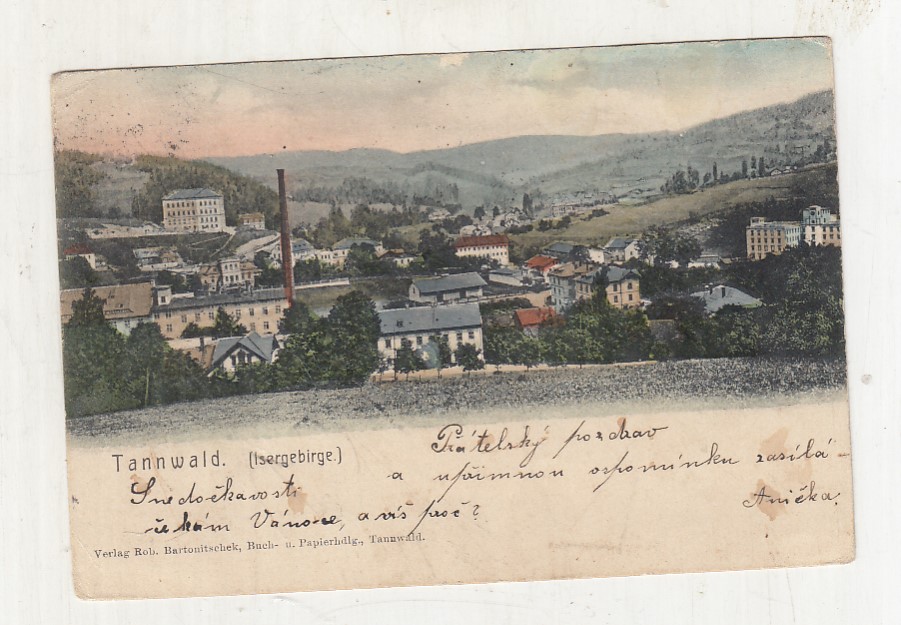 Tannwald. (Isergebirge.)
Přátelský pozdrav
a upřímnou ospomínku zasílá
Anička.
S nedočkavosti
čekám Vánoce, a víš proč?
Verlag Rob. Bartonitschek, Buch- u. Papierhdlg., Tannwald.